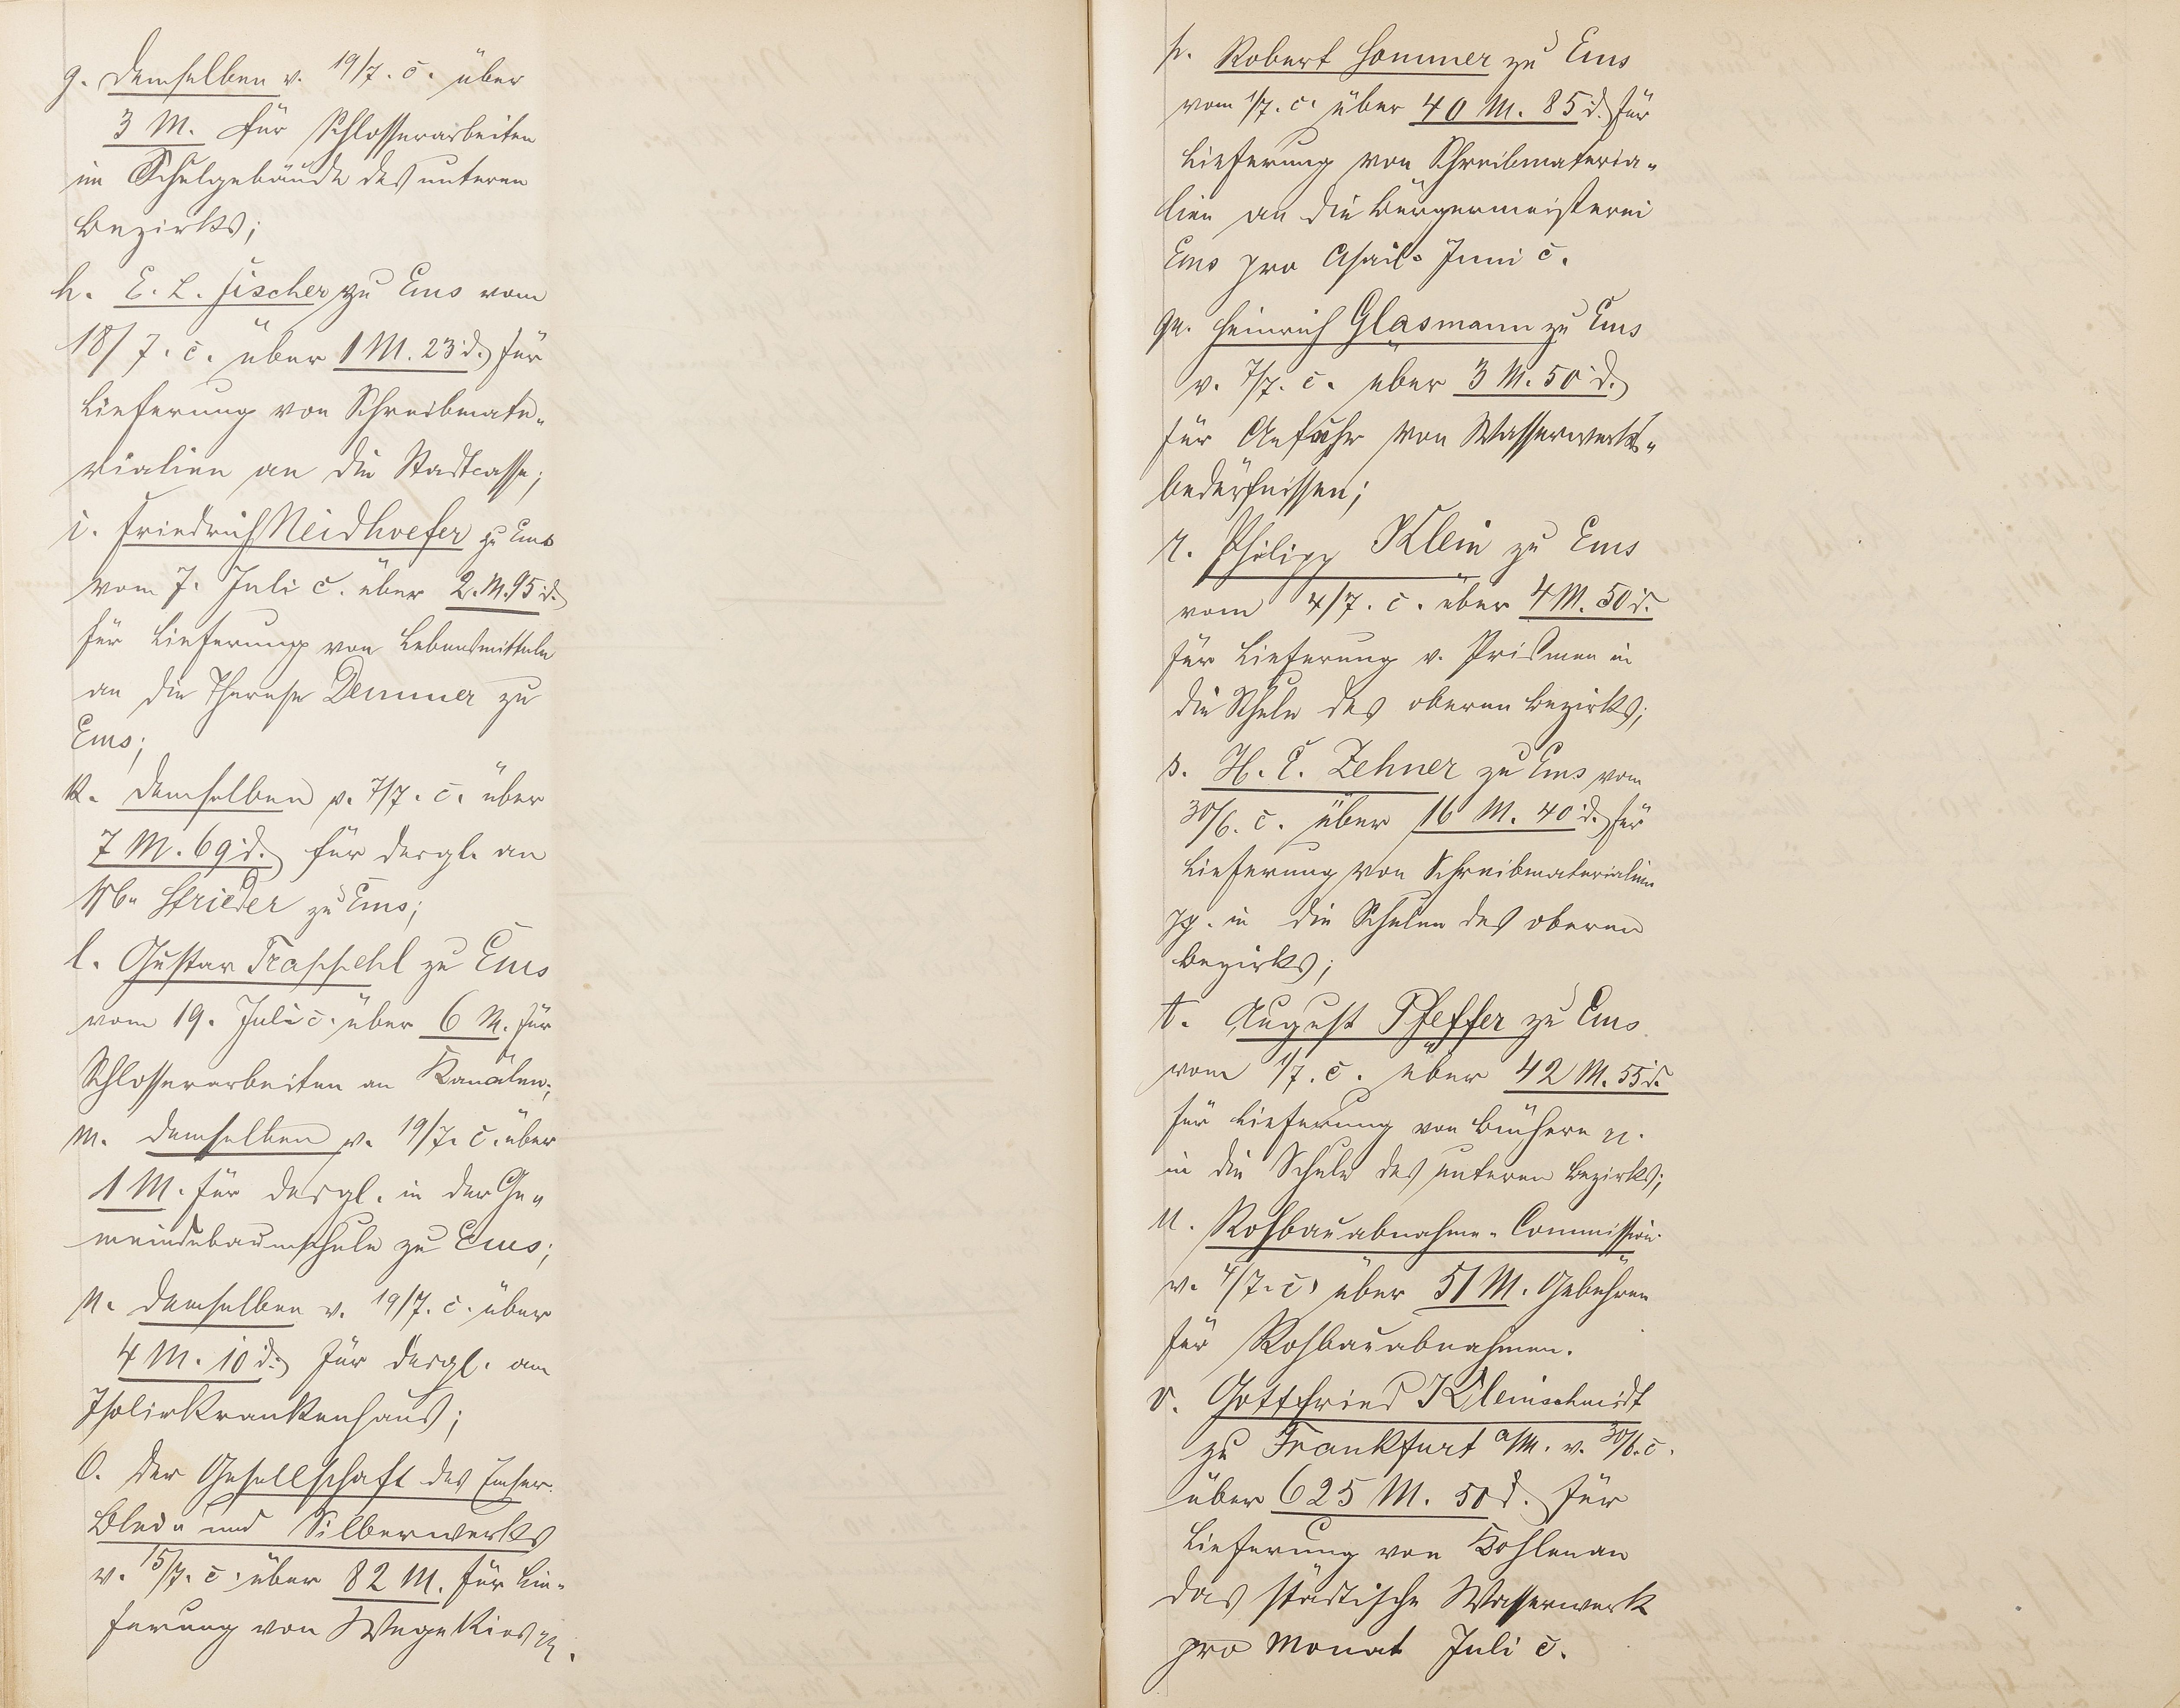 g. demselben v. 19/7. c. über
3 M. für Schlosserarbeiten
im Schulgebäude des unteren
Bezirks;
h. E. L. Fischer zu Ems vom
18/7. c. über 1 M. 23 d. für
Lieferung von Schreibmate-
rialien an die Stadtcasse;
i. Friedrich Neidhoefer zu Ems
vom 7. Juli c. über 2. M. 95 d.
für Lieferung von Lebensmitteln
an die Therese Demmer zu
Ems;
k. demselben v. 7/7. c. über
7 M. 69 d. für dergl. an
Strieder zu Ems;
l. Gustav Traxehl zu Ems
vom 19. Juli c. über 6 M. für
Schlosserarbeiten an Kanälen;
m. demselben v. 19/7. c. über
1 M. für dergl. in der Ge-
meindebaumschule zu Ems;
n. demselben v. 19/7. c. über
4 M. 10 d. für dergl. am
Isolirkrankenhaus;
o. der Gesellschaft des Emser
Blei- und Silberwerks
v. 15/7. c. über 82 M. für Lie-
ferung von Wegekies pp.
p. Robert Sommer zu Ems
vom 1/7. c. über 40 M. 85 d. für
Lieferung von Schreibmateria-
lien an die Bürgermeisterei
Ems pro April-Juni c.
q. Heinrich Glasmann zu Ems
v. 7/7. c. über 3 M. 50 d.
für Anfuhr von Wasserwerks-
bedürfnissen;
r. Philipp Klein zu Ems
vom 4/7. c. über 4 M. 50 d.
für Lieferung v. Prismen in
die Schule des oberen Bezirks;
s. H. C. Zehner zu Ems vom
30/6. c. über 16 M. 40 d. für
Lieferung von Schreibmaterialien
pp. in die Schulen des oberen
Bezirks;
t. August Pfeffer zu Ems
vom 1/7. c. über 42 M. 55 d.
für Lieferung von Büchern pp.
in die Schule des unteren Bezirks;
u. Rohbauabnahme-Commission
v. 4/7. c. über 51 M. Gebühren
für Rohbauabnahmen.
v. Gottfried Kleinschmidt
zu Frankfurt a/M. v. 30/6. c.
über 625 M. 50 d. für
Lieferung von Kohlen an
das städtische Wasserwerk
pro Monat Juli c.